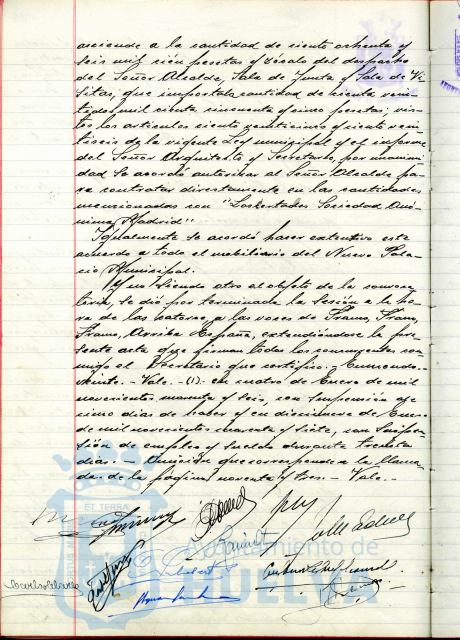 asciende a la cantidad de ciento ochenta y
seis mil cien pesetas y zócalo del despacho
del Señor Alcalde, Sala de Junta y Sala de Vi-
sitas, que importa la cantidad de treinta y ein-
tidosmil ciento cincuenta y cinco pesetas; vis-
tos los artículos ciento veinticinco y ciento vein-
tiseis de la vigente Ley municipal y el informe
del Señor Arquitecto y Secretario, por unanimi-
dad se acordó autorizar al Señor Alcalde pa-
ra contratar directamente en las cantidades
mencionadas con "Loskertades Sociedad Anó-
nima Madrid"
Igualmente se acordó hacer extentivo este
acuerdo a todo el mobiliario del Nuevo Pala-
cio Municipal.
Y no siendo otro el objeto de la convoca-
toria, se dió por terminada la sesión a la ho-
ra de las catorce, a las voces de Franco, Franco,
Franco, Arriba España, extendiéndose la pre-
sente acta que firman todos los concurrentes con-
migo el Secretario que certifico.- Enmendo.-
Vale.- (1). en cuatro de Enero de mil
novecientos cuarenta y seis, con suspensión de
cinco dias de haber y en diecinueve de Enero
de mil novecientos cuarenta y siete, con suspen-
sión de empleo y sueldo durante treinta
dias.- Omisión que corresponde a la llama-
da de la página noventa y tres.- Vale.-
Ayuntamiento de
HUELVA